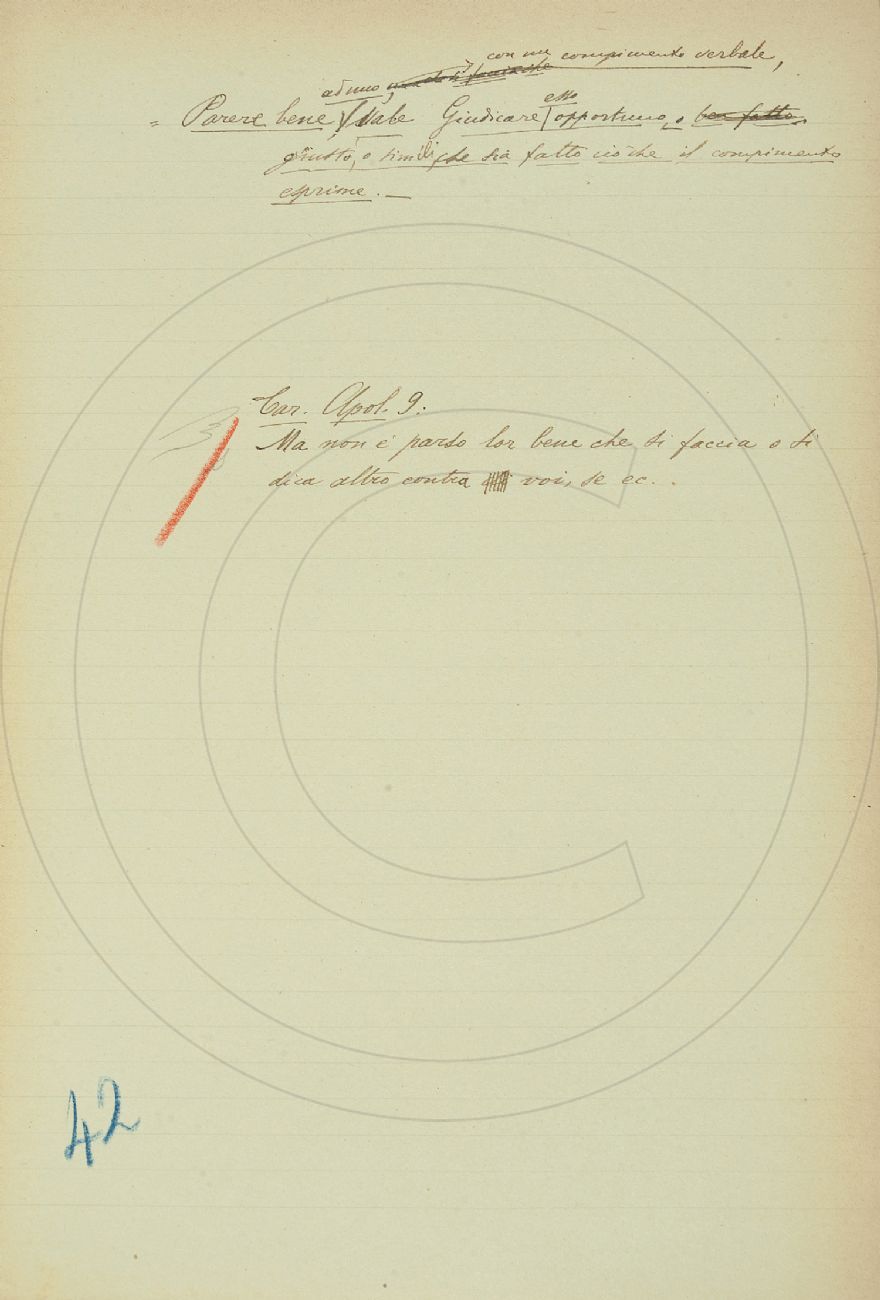 con un compimento verbale,
ad uno,
esso
= Parere bene, Vale Giudicare opportuno, o ben fatto,
giusto, o simili, che sia fatto ciò che il compimento
esprime. —
Car. Apol. 9.
Ma non è parso lor bene che si faccia o si
dica altro contra voi, se ec. .
42